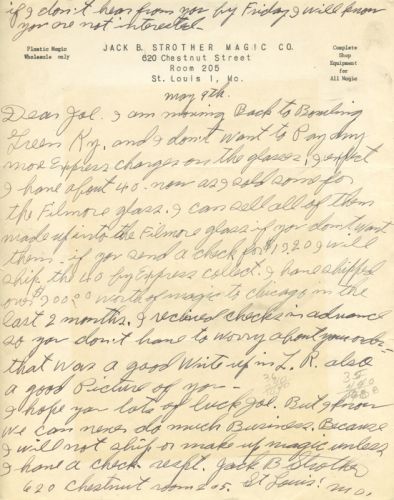 if I don't hear from you by Friday I will know
you are not interested.
Plastic Magic
Wholesale only
JACK B. STROTHER MAGIC CO.
620 Chestnut Street
Room 205
St. Louis 1, Mo.
Complete
Shop
Equipment
for
All Magic
May 9th.
Dear Joe. I am moving Back to Bowling
Green Ky. and I don't want to Pay any
more Express charges on the glasses. I expect
I have about 40. now as I sold some for
the Filmore glass. I can sell all of them
made up into the Filmore glass if you don't want
them. if you send a check for $13.20 I will
ship the 40 by Express collect. I have shipped
over $700.00 worth of magic to chicago in the
last 2 months. I recieved checks in advance
so you don't have to worry about your
that was a good Write up in L. R. also
a good Picture of you -
I hope you lots of luck Joe. But I know
we can never do much Business. Because
I will not ship or make up magic unless
I have a check. respt. Jack B Strother
620 chestnut room 205. St Louis. Mo.